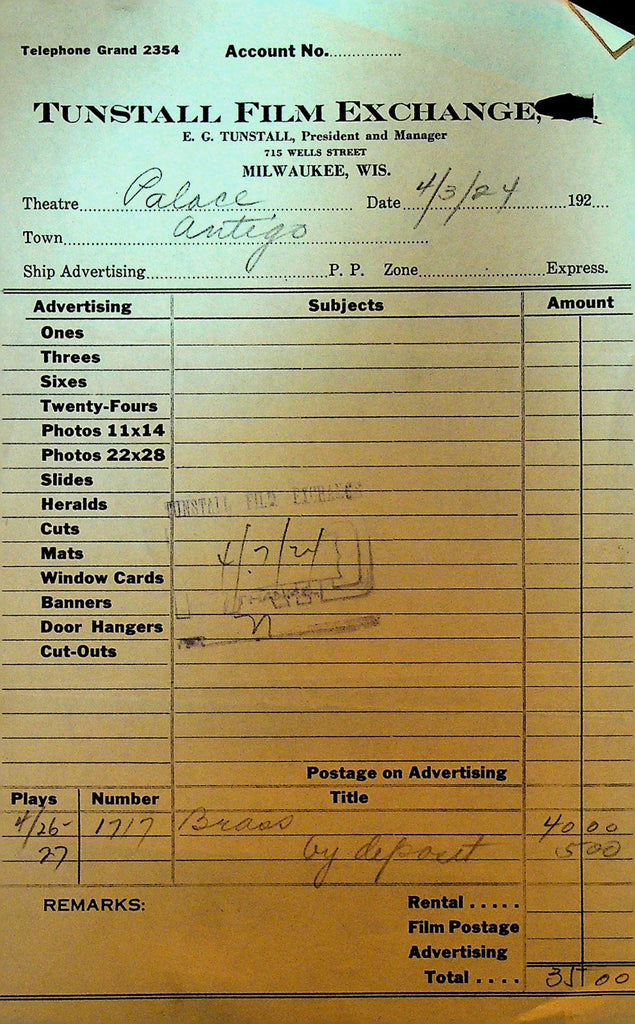 Telephone Grand 2354 Account No................
TUNSTALL FILM EXCHANGE,
E. G. TUNSTALL, President and Manager
715 WELLS STREET
MILWAUKEE, WIS.
Theatre Palace Date 4/3/24 192....
Town Antigo
Ship Advertising P. P. Zone Express.
Advertising Subjects Amount
Ones
Threes
Sixes
Twenty-Fours
Photos 11x14
Photos 22x28
Slides
Heralds
TUNSTALL FILM EXCHANGE
Cuts
Mats 4/7/24
Window Cards
Banners
Door Hangers
Cut-Outs
Postage on Advertising
Plays Number Title
4/26- 1717 Brass 40 00
27 by deposit 5 00
REMARKS: Rental .....
Film Postage
Advertising
Total .... 35 00